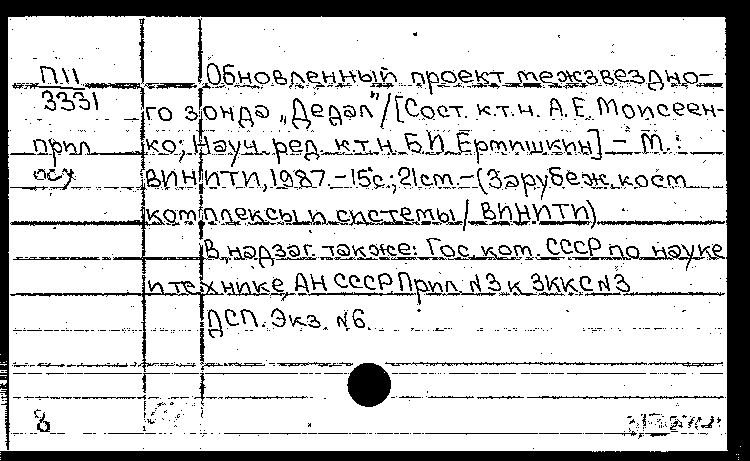 П11
3331
прил
осх
Обновленный проект межзвездно-
го зонда „Дедал"/[Сост. к.т.н. А.Е. Моисеен-
ко; Науч. ред. к.т.н. Б.И. Ермишкин] – М.:
ВИНИТИ, 1987. – 15с.; 21см. – (Зарубеж. косм
комплексы и системы / ВИНИТИ)
В надзаг. также: Гос. ком. СССР по науке
и технике, АН СССР Прил. N3 к ЗККС N3
ДСП. Экз. N6.
8